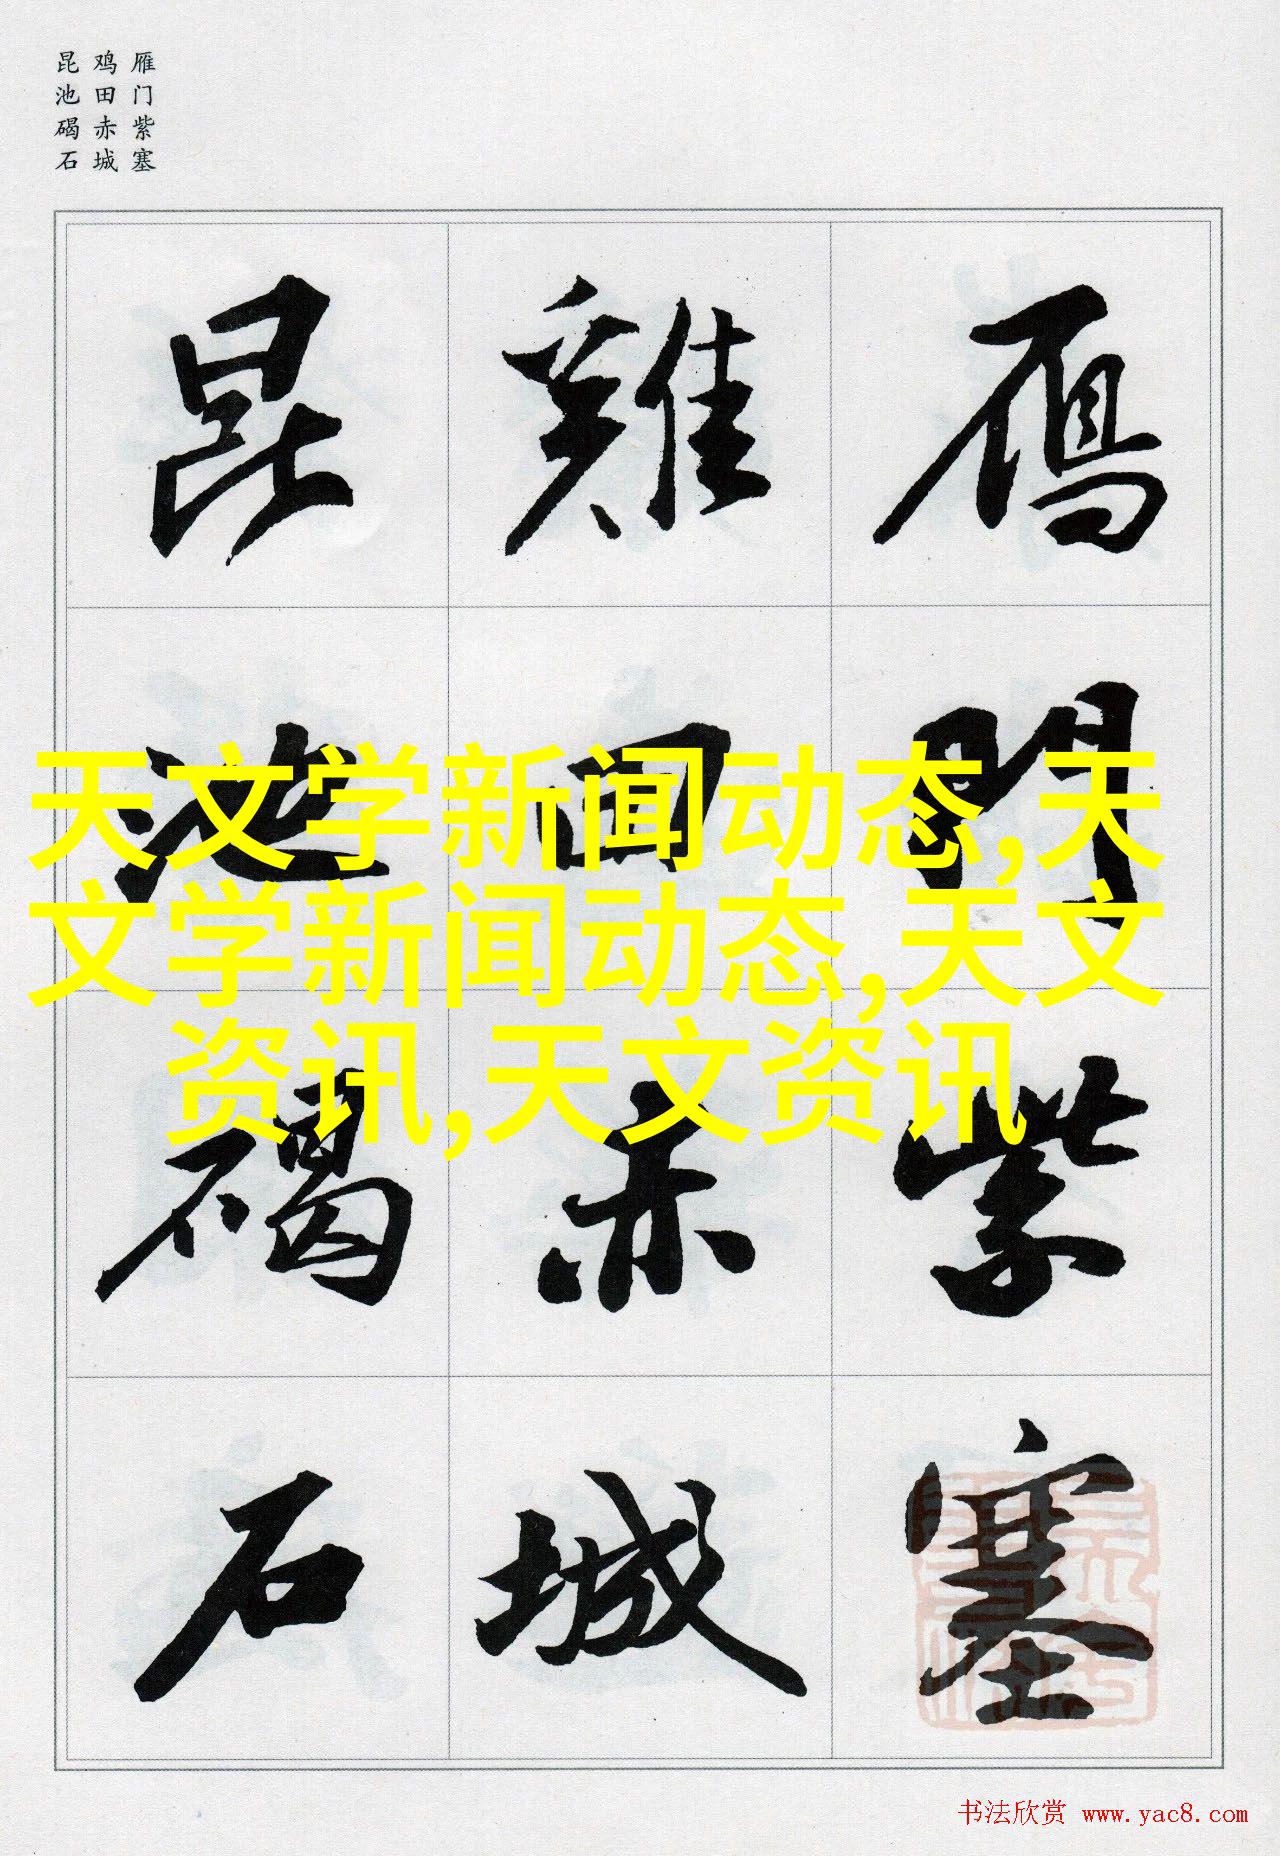 雁门紫塞
鸡田赤城
昆池碣石
雁門紫塞
雞田赤城
昆池碣石
天文学新闻动态,天
文学新闻动态,天文
资讯,天文资讯
书法欣赏 www.yac8.com